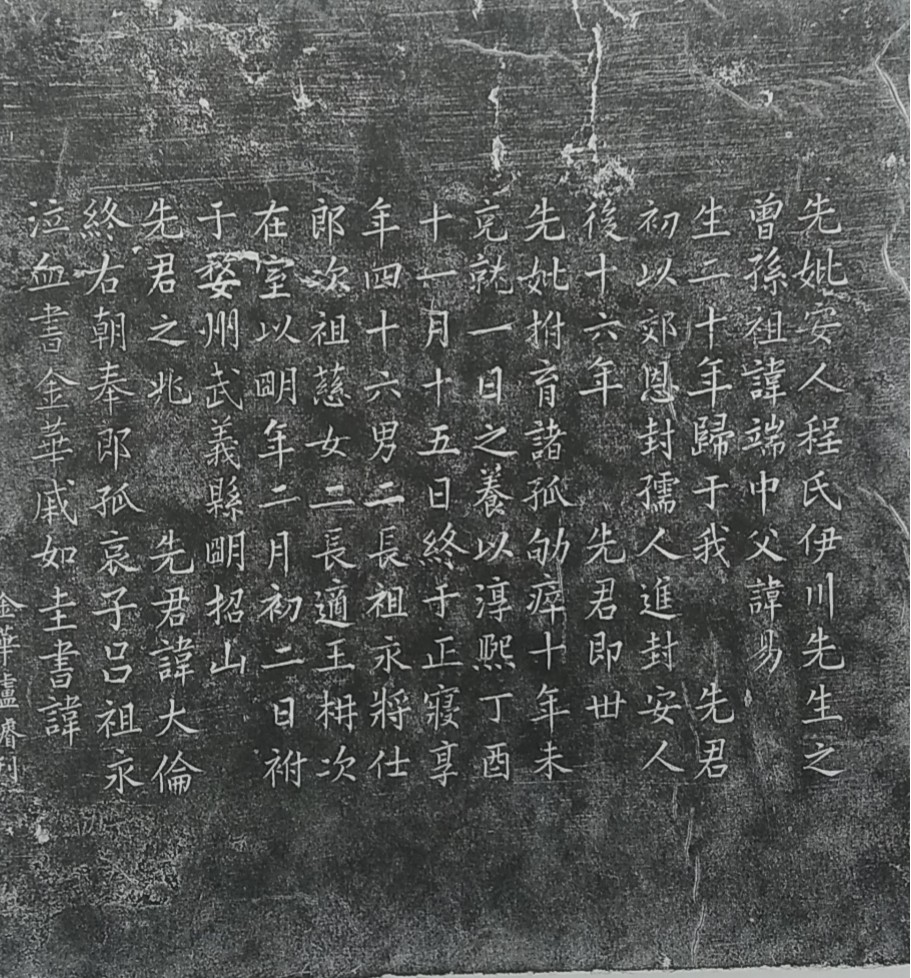 先妣安人程氏伊川先生之
曾孫祖諱端中父諱易
生二十年歸于我 先君
初以郊恩封孺人進封安人
後十六年 先君即世
先妣拊育諸孤劬瘁十年未
竟就一日之養以淳熙丁酉
十一月十五日終于正寢享
年四十六男二長祖永將仕
郎次祖慈女二長適王枏次
在室以明年二月初二日祔
于婺州武義縣明招山
先君之兆 先君諱大倫
終右朝奉郎孤哀子呂祖永
泣血書金華戚如圭書諱
金華盧膺刊